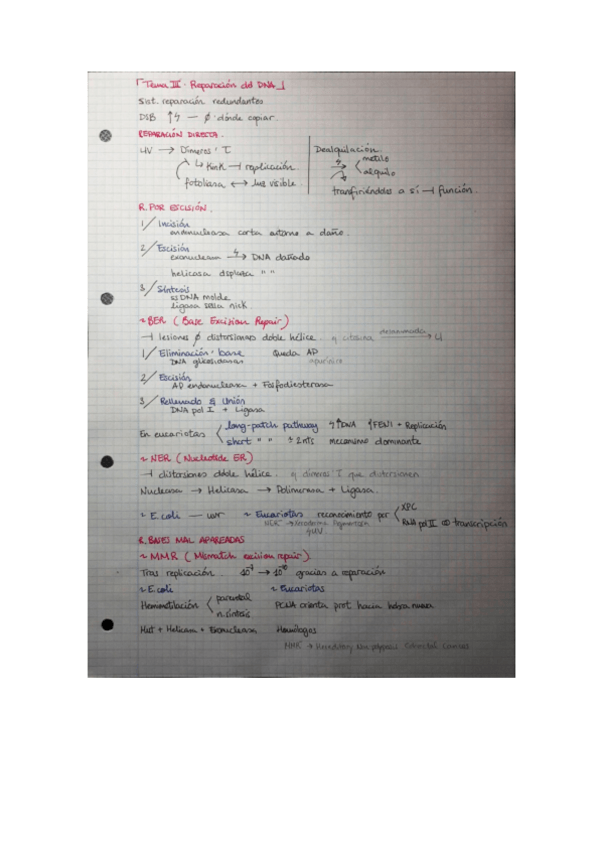 Tema III · Reparación del DNA
Sist. reparación redundantes
DSB ↑ϟ — ∅ dónde copiar.
REPARACIÓN DIRECTA.
UV → Dímeros T
↳ Kink → replicación.
fotoliasa ↔ luz visible.
Dealquilación.
metilo
alquilo
transfiriéndolos a sí → función.
R. POR ESCISIÓN.
1/ Incisión
endonucleasa corta entorno a daño.
2/ Escisión
exonucleasa → DNA dañado
helicasa desplaza " "
3/ Síntesis
ssDNA molde
ligasa sella nick
~ BER (Base Excision Repair)
→ lesiones ∅ distorsiones doble hélice. citosina desaminada → U.
1/ Eliminación base Queda AP
DNA glicosilasas apurínico
2/ Escisión
AP endonucleasa + Fosfodiesterasa
3/ Rellenado & Unión
DNA pol I + Ligasa
En eucariotas
long-patch pathway ϟ↑DNA FEN1 + Replicación
short " " ± 2nts mecanismo dominante
~ NER (Nucleotide ER)
→ distorsiones doble hélice. dímeros T que distorsionen
Nucleasa → Helicasa → Polimerasa + Ligasa.
~ E. coli — uvr ~ Eucariotas reconocimiento por
XPC
RNA pol II transcripción
NER → Xeroderma Pigmentosa
ϟUV
R. BASES MAL APAREADAS
~ MMR (Mismatch excision repair)
Tras replicación. 10⁷ → 10¹⁰ gracias a reparación
~ E. coli ~ Eucariotas
Hemimetilación
parental
n. síntesis
PCNA orienta prot. hacia hebra nueva
Mut + Helicasa + Exonucleasa Homólogos
MMR → Hereditary Non polyposis Colorectal Cancer